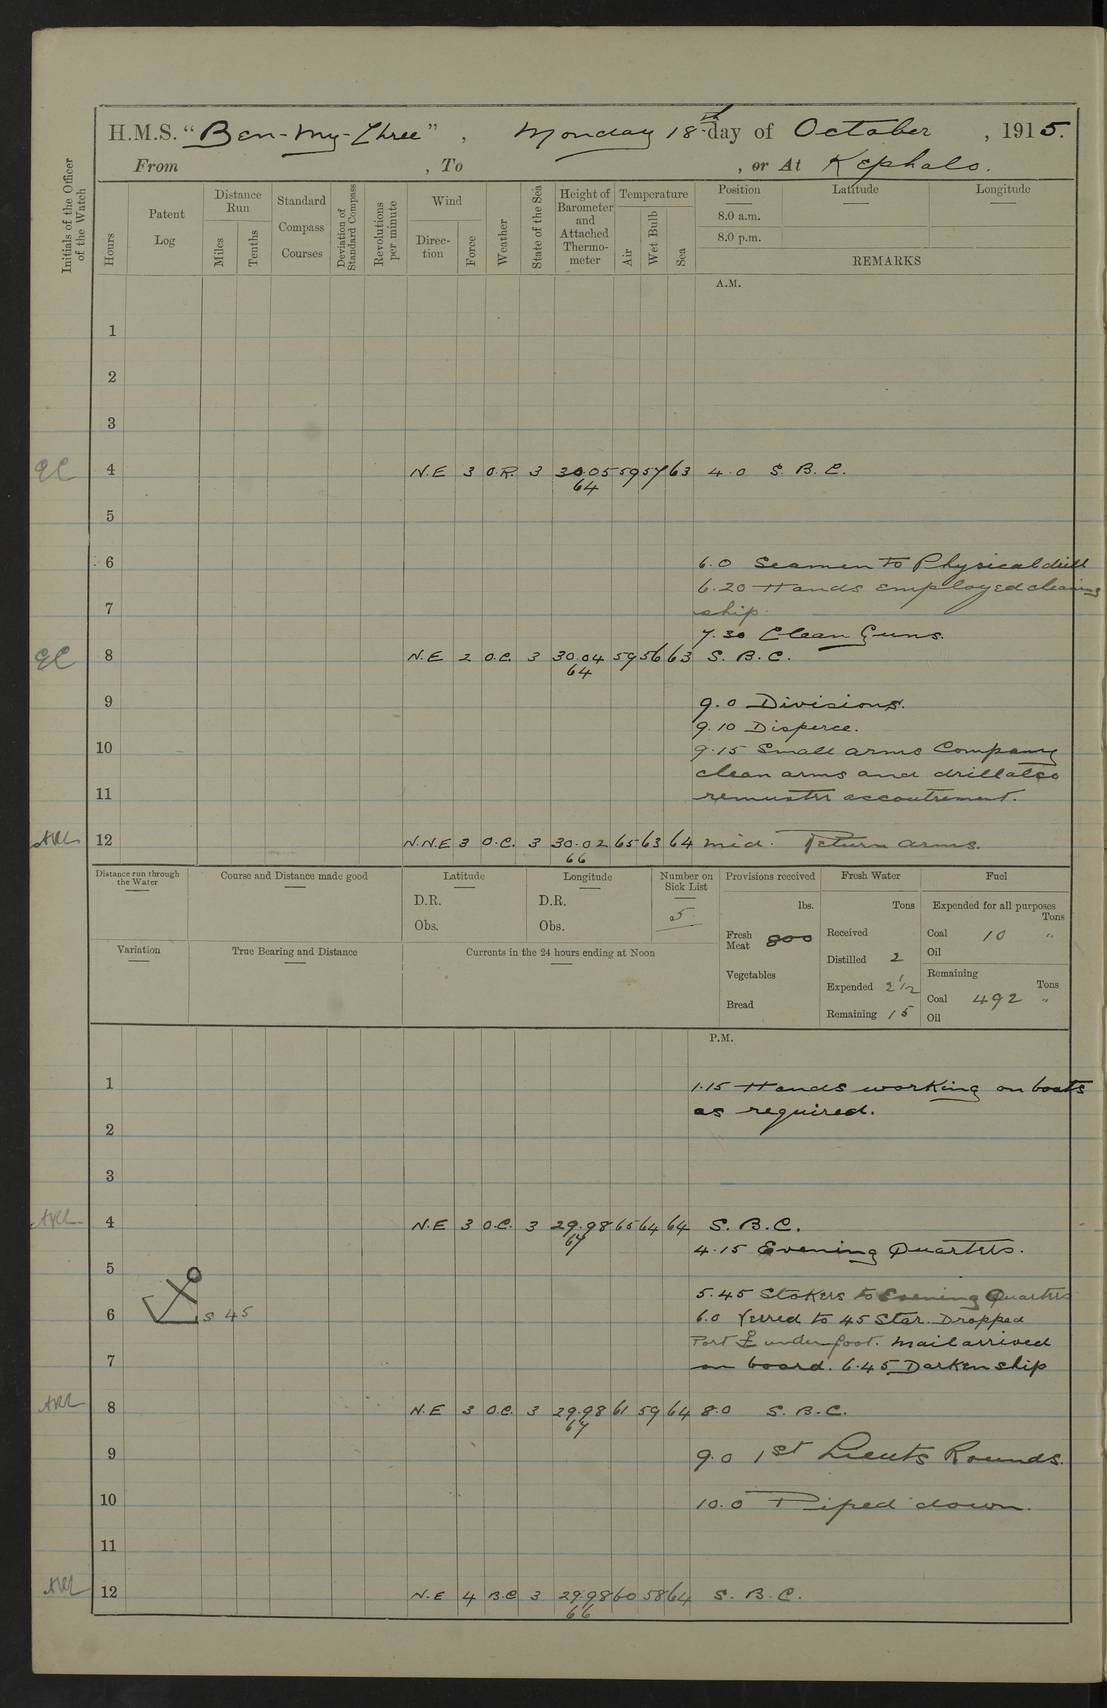 H.M.S. "Ben-my-Chree", Monday 18th day of October, 1915.
From , To , or At Kephalo.
Initials of the Officer of the Watch
Hours
Patent Log
Distance Run
Miles
Tenths
Standard Compass Courses
Deviation of Standard Compass
Revolutions per minute
Wind
Direction
Force
Weather
State of the Sea
Height of Barometer and Attached Thermometer
Temperature
Air
Wet Bulb
Sea
Position
Latitude
Longitude
8.0 a.m.
8.0 p.m.
REMARKS
A.M.
1
2
3
4 N.E 3 O.R. 3 30.05 59 57 63 4.0 S. B. C.
64
5
6 6.0 Seamen to Physical drill
6.20 Hands employed cleaning
7 ship.
7.30 Clean Guns.
8 N.E 2 O.C. 3 30.04 59 56 63 S. B. C.
64
9 9.0 Divisions.
9.10 Disperce.
10 9.15 Small arms Company
clean arms and drill also
11 remuster accoutrement.
12 N.N.E 3 O.C. 3 30.02 65 63 64 mid. Return arms.
66
Distance run through the Water
Course and Distance made good
Latitude
D.R.
Obs.
Longitude
D.R.
Obs.
Number on Sick List
5
Provisions received
lbs.
Fresh Meat 800
Vegetables
Bread
Fresh Water
Tons
Received
Distilled 2
Expended 2 1/2
Remaining 15
Fuel
Expended for all purposes
Tons
Coal 10 "
Oil
Remaining
Tons
Coal 492 "
Oil
Variation
True Bearing and Distance
Currents in the 24 hours ending at Noon
P.M.
1 1.15 Hands working on boats
as required.
2
3
4 N.E 3 O.C. 3 29.98 65 64 64 S. B. C.
67
4.15 Evening Quarters.
5
5.45 Stokers to Evening Quarters
6 S 45 6.0 Veered to 45 Star. Dropped
Port under foot. Mail arrived
7 on board. 6.45 Darken ship
8 N.E 3 O.C. 3 29.98 61 59 64 8.0 S. B. C.
67
9 9.0 1st Lieuts Rounds.
10 10.0 Piped down.
11
12 N.E 4 B.C 3 29.98 60 58 64 S. B. C.
66